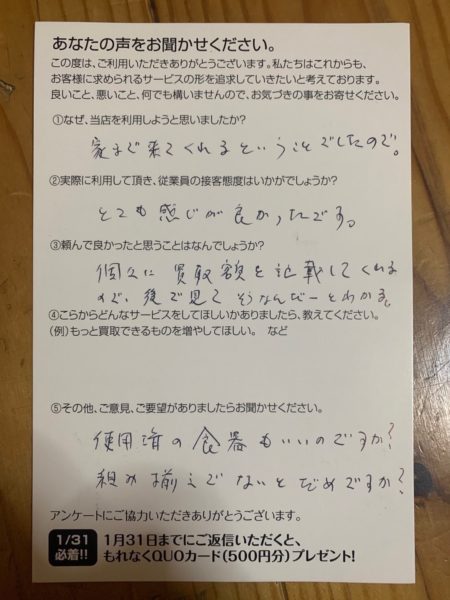 あなたの声をお聞かせください。
この度は、ご利用いただきありがとうございます。私たちはこれからも、
お客様に求められるサービスの形を追求していきたいと考えております。
良いこと、悪いこと、何でも構いませんので、お気づきの事をお寄せください。
①なぜ、当店を利用しようと思いましたか?
家まで来てくれるということでしたので。
②実際に利用して頂き、従業員の接客態度はいかがでしょうか?
とても感じが良かったです。
③頼んで良かったと思うことはなんでしょうか?
個々に買取額を記載してくれる
ので、後で見てそうなんだーとわかる。
④こらからどんなサービスをしてほしいかありましたら、教えてください。
(例)もっと買取できるものを増やしてほしい。 など
⑤その他、ご意見、ご要望がありましたらお聞かせください。
使用済の食器もいいのですか?
組み揃えでないとだめですか?
アンケートにご協力いただきありがとうございます。
1/31
必着!!
1月31日までにご返信いただくと、
もれなくQUOカード(500円分)プレゼント!